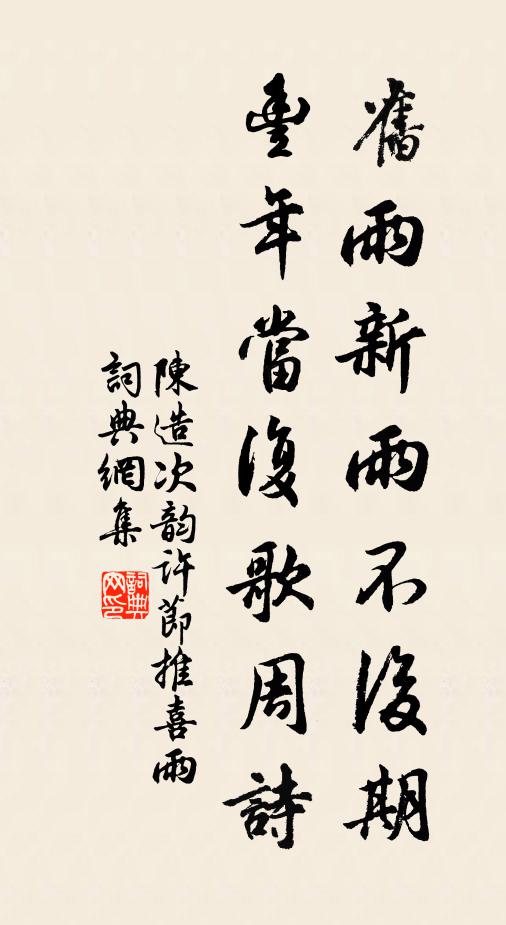 舊雨新雨不後期
豐年當復歌周詩
陳造次韵許節推喜雨
詞典網集
詞典网印